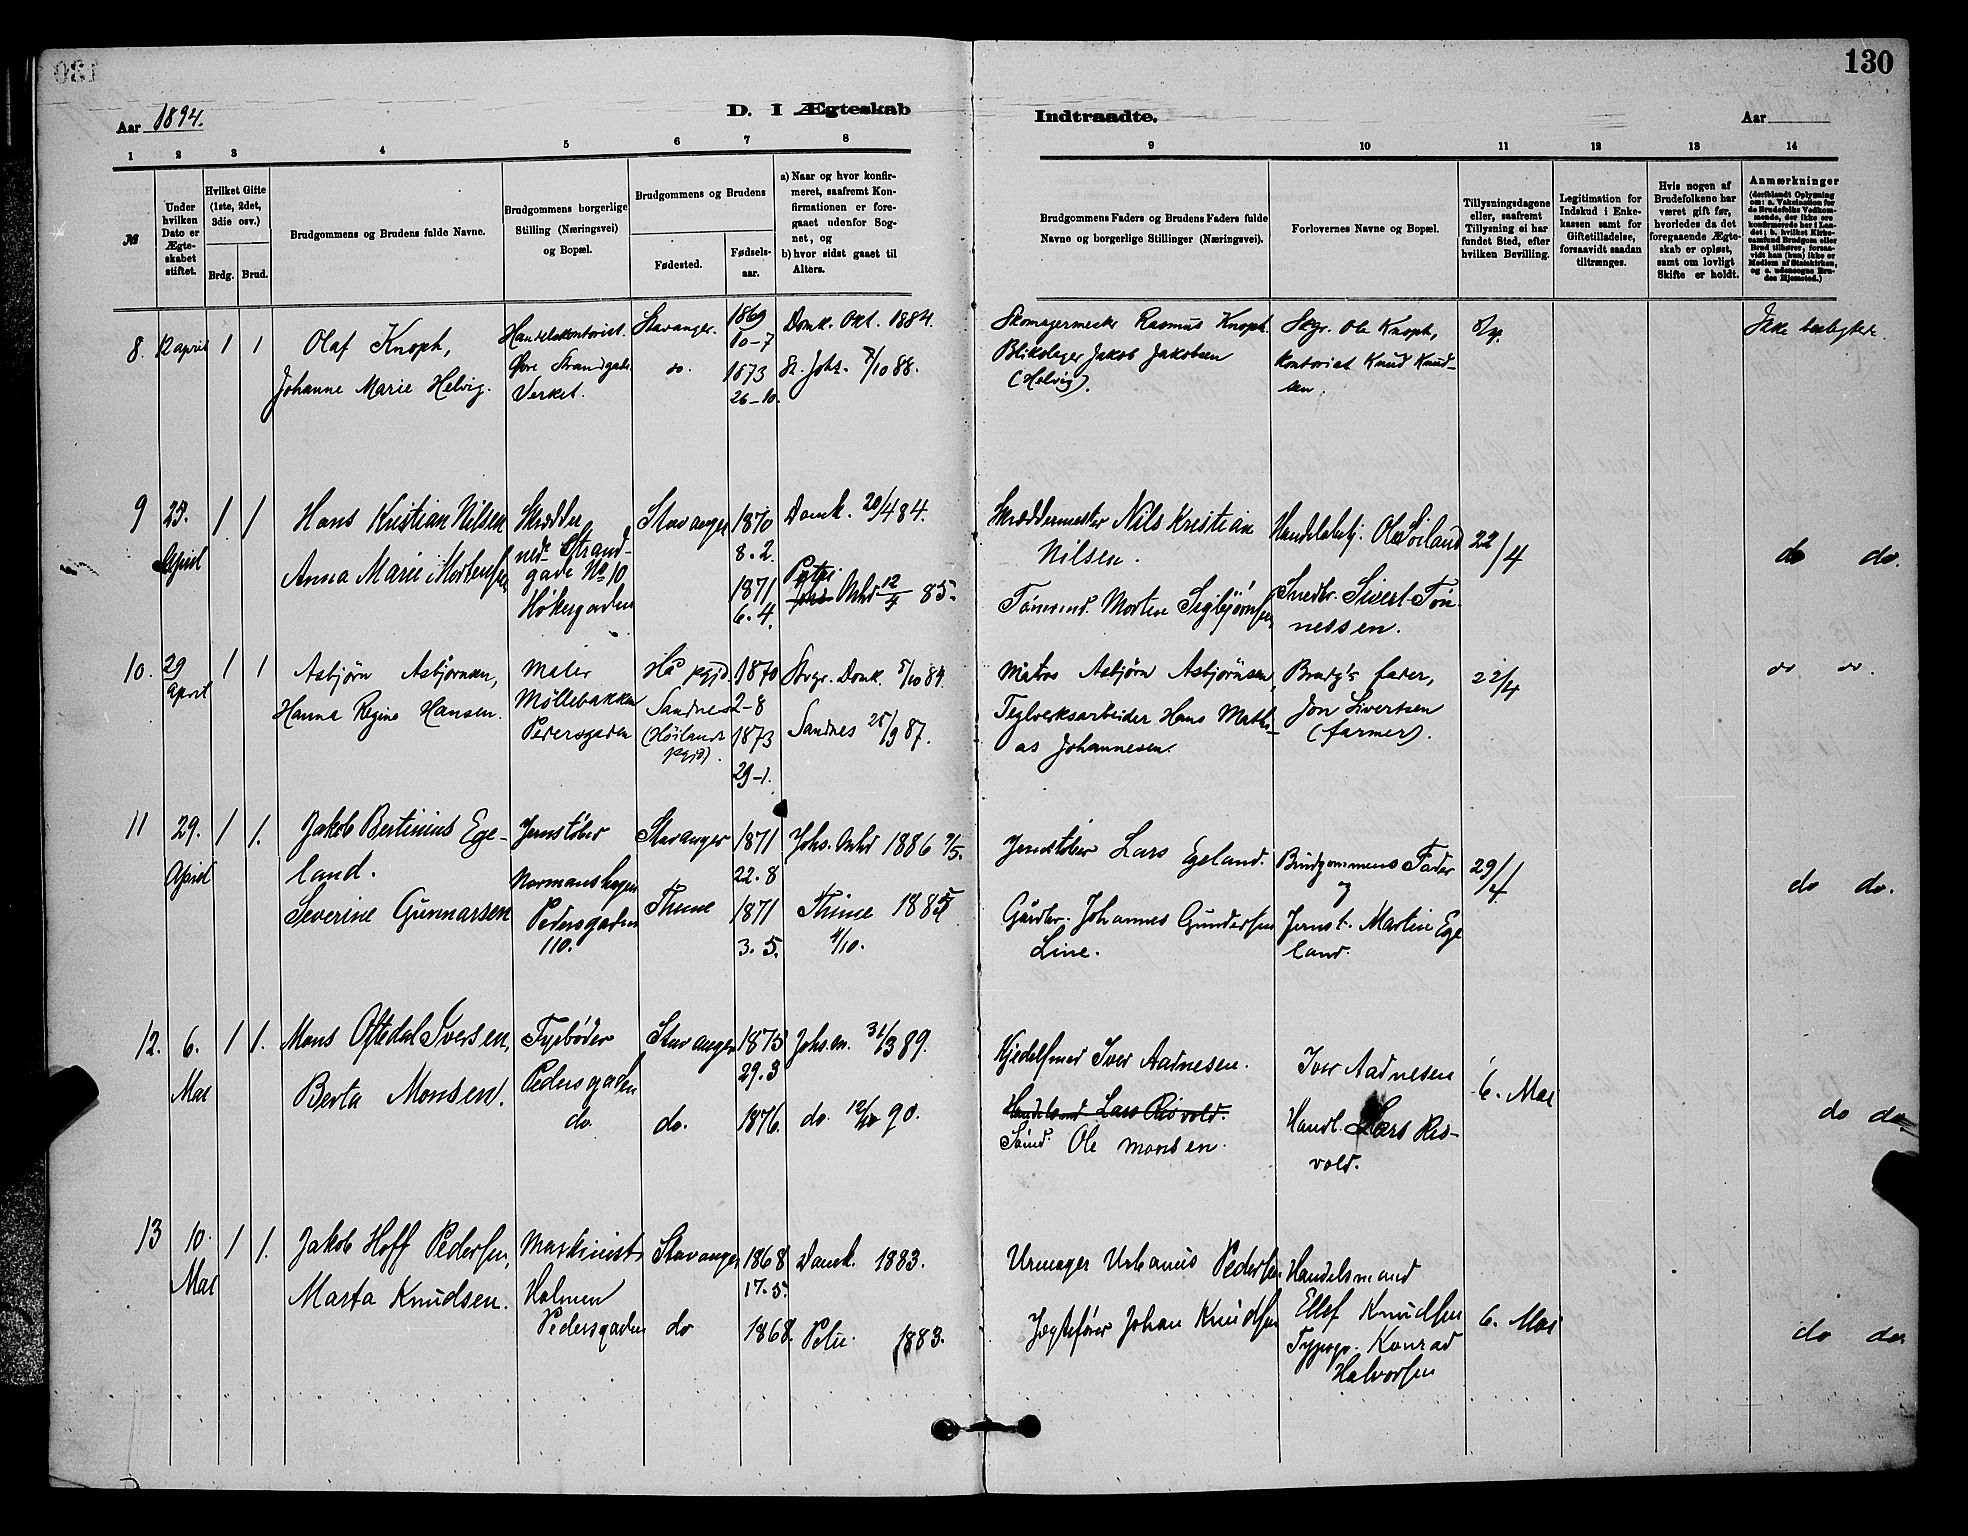 130
Aar 1894.
D. I Ægteskab Indtraadte.
Aar
1 2 3 4 5 6 7 8 9 10 11 12 13 14
№
Under hvilken Dato er Ægteskabet stiftet.
Hvilket Gifte (1ste, 2det, 3die osv.)
Brdg. Brud.
Brudgommens og Brudens fulde Navne.
Brudgommens borgerlige Stilling (Næringsvei) og Bopæl.
Brudgommens og Brudens
Fødested.
Fødselsaar.
a) Naar og hvor konfirmeret, saafremt Konfirmationen er foregaaet udenfor Sognet, og
b) hvor sidst gaaet til Alters.
Brudgommens Faders og Brudens Faders fulde Navne og borgerlige Stillinger (Næringsvei).
Forlovernes Navne og Bopæl.
Tillysningsdagene eller, saafremt Tillysning ei har fundet Sted, efter hvilken Bevilling.
Legitimation for Indskud i Enkekassen samt for Giftetilladelse, forsaavidt saadan tiltrænges.
Hvis nogen af Brudefolkene har været gift før, hvorledes da det foregaaende Ægteskab er opløst, samt om lovligt Skifte er holdt.
Anmærkninger
8. 12 april 1 1
Olaf Knoph,
Johanne Marie Helvig.
Handelskontorist.
Øvre Strandgade
Verket.
Stavanger.
do.
1869
10-7
1873
26-10.
Domk. Okt. 1884.
St. Johs. 7/10 88.
Skomagermester Rasmus Knoph.
Blikslager Jakob Jakobsen
(Helvig).
Skgr. Ole Knoph,
kontorist Knud Knud-
sen.
8/4.
Ikke beslegtet.
9 25. April 1 1
Hans Kristian Nilsen
Anna Marie Mortensen
Skrædder
ned. Strand-
gade № 10
Høkergaden
Stavanger
1870
8. 2.
1871
6. 4.
Domk. 20/4 84.
Petri
12/4 85.
Skræddermester Nils Kristian
Nilsen.
Tømmmd. Morten Sigbjørnsen
Handelsbetj. Ole Soiland
Snedkr. Sivert Tøn-
nessen.
22/4
do do.
10. 29 april 1 1
Asbjørn Asbjørnsen,
Hanna Regine Hansen.
Maler
Møllebakken
Pedersgaden
Hå pgjd.
Sandnes
(Høilands
pgjd).
1870
2-8
1873
29-1.
Stvgr. Domk. 5/10 84.
Sandnes 25/9 87.
Matros Asbjørn Asbjørnsen,
Teglverksarbeider Hans Math-
as Johannesen.
Brudg's fader,
Jon Sivertsen
(farmer).
22/4
do do.
11 29. April 1 1.
Jakob Bertinius Ege-
land.
Severine Gunnarsen
Jernstøber
Normanshagen
Pedersgaden
110.
Stavanger
Thime
1871
22. 8
1871
3. 5.
Johs. Mhd 1886 2/5.
Thime 1885
4/10.
Jernstøber Lars Egeland.
Gårdbr. Johannes Gundersen
Line.
Brudgommens Fader
og
Jernst. Martin Ege
land.
29/4
do do.
12. 6. Mai 1 1.
Mons Oftedal Iversen,
Berta Monsen.
Fyrbøder
Pedersgaden
do.
Stavanger
do.
1873
29. 3
1876.
Johsm. 31/3 89.
do 90.
Kjedelsmed Iver Aadnesen.
Handelsmd Lars Risvold.
Sømd. Ole Monsen.
Iver Aadnesen
Handl. Lars Ris-
vold.
6. Mai
do do.
13 10. Mai 1 1.
Jakob Hoff Pedersen,
Marta Knudsen.
Maskinist
Holmen
Pedersgaden
Stavanger
do
1868
17. 5.
1868.
Domk. 1883.
Petri 1883.
Urmager Urbanus Pedersen
Jægtefører Johan Knudsen
Handelsmand
Ellef Knudsen
Typogr. Konrad
Halvorsen
6. Mai
do do